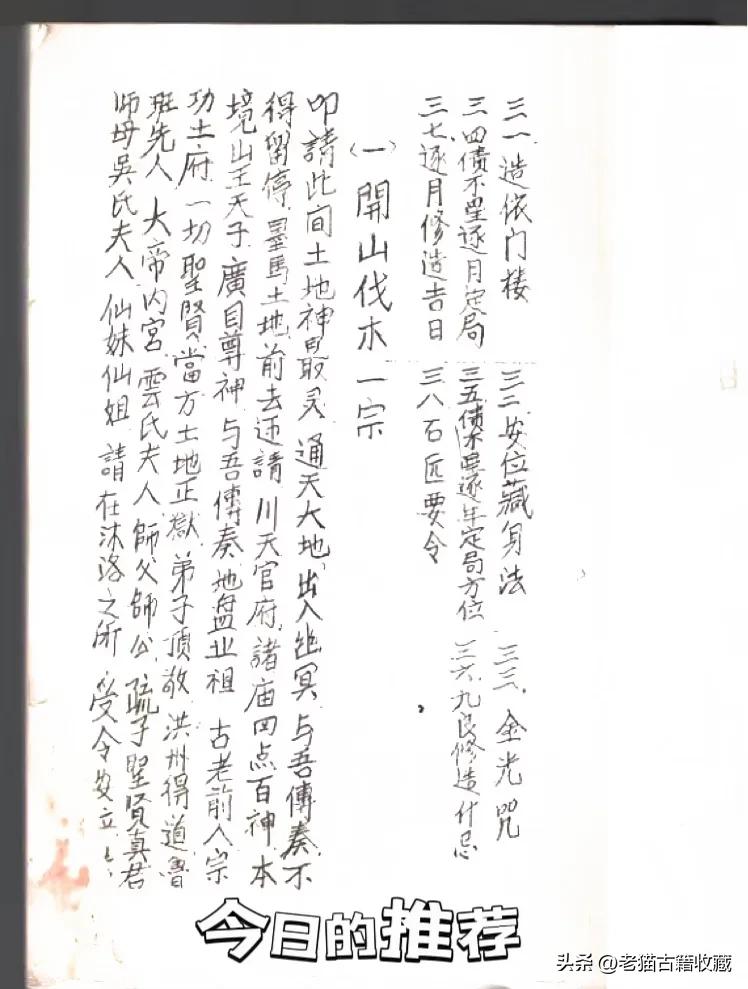 三一造依门楼 三二安位藏身法 三三金光咒
三四债不星逐月定局 三五债不星逐年定局方位 三六九良修造什忌
三七逐月修造吉日 三八石匠要令
(一)開山伐木一宗
叩請此间土地神最灵 通天大地出入幽冥 与吾傳奏不
得留停 墨馬土地前去迎請 川天官府 諸庙四点百神 本
境山王天子 廣目尊神 与吾傳奏 地盘业祖 古老前人 宗
功土府 一切聖賢 當方土地正獄 弟子頂敬 洪州得道魯
班先人 大帝内宮 雲氏夫人 師父師公 疏子聖賢真君
师母吳氏夫人 仙妹仙姐 請在沐洛之所 受令安立
今日的推荐
头条 @老猫古籍收藏